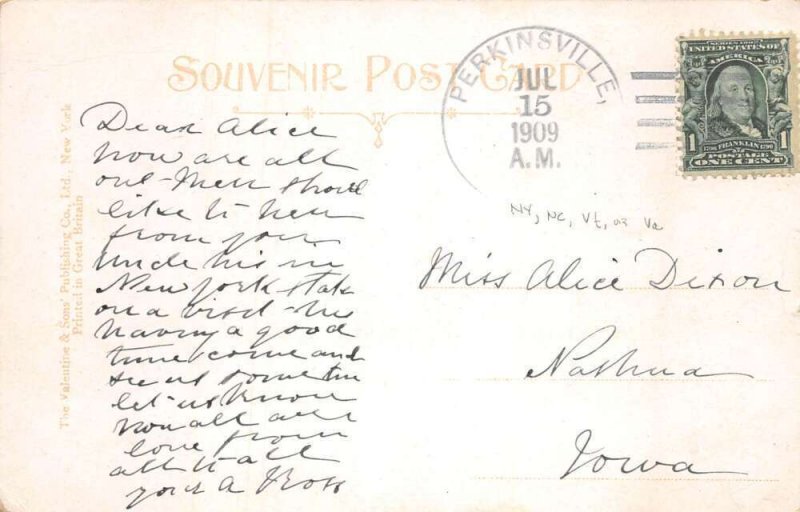 SOUVENIR POST CARD
PERKINSVILLE,
JUL
15
1909
A.M.
SERIES 1902
UNITED STATES OF
AMERICA
1 FRANKLIN 1
POSTAGE
ONE CENT
The Valentine & Sons' Publishing Co., Ltd., New York
Printed in Great Britain
Dear Alice
how are all
out there should
like to hear
from you
Uncle his in
New york state
on a visit - his
having a good
time come and
see us sometim
let us know
how all are
love from
all to all
your A
NY, NC, Vt, or Va
Miss Alice Dixon
Nashua
Iowa